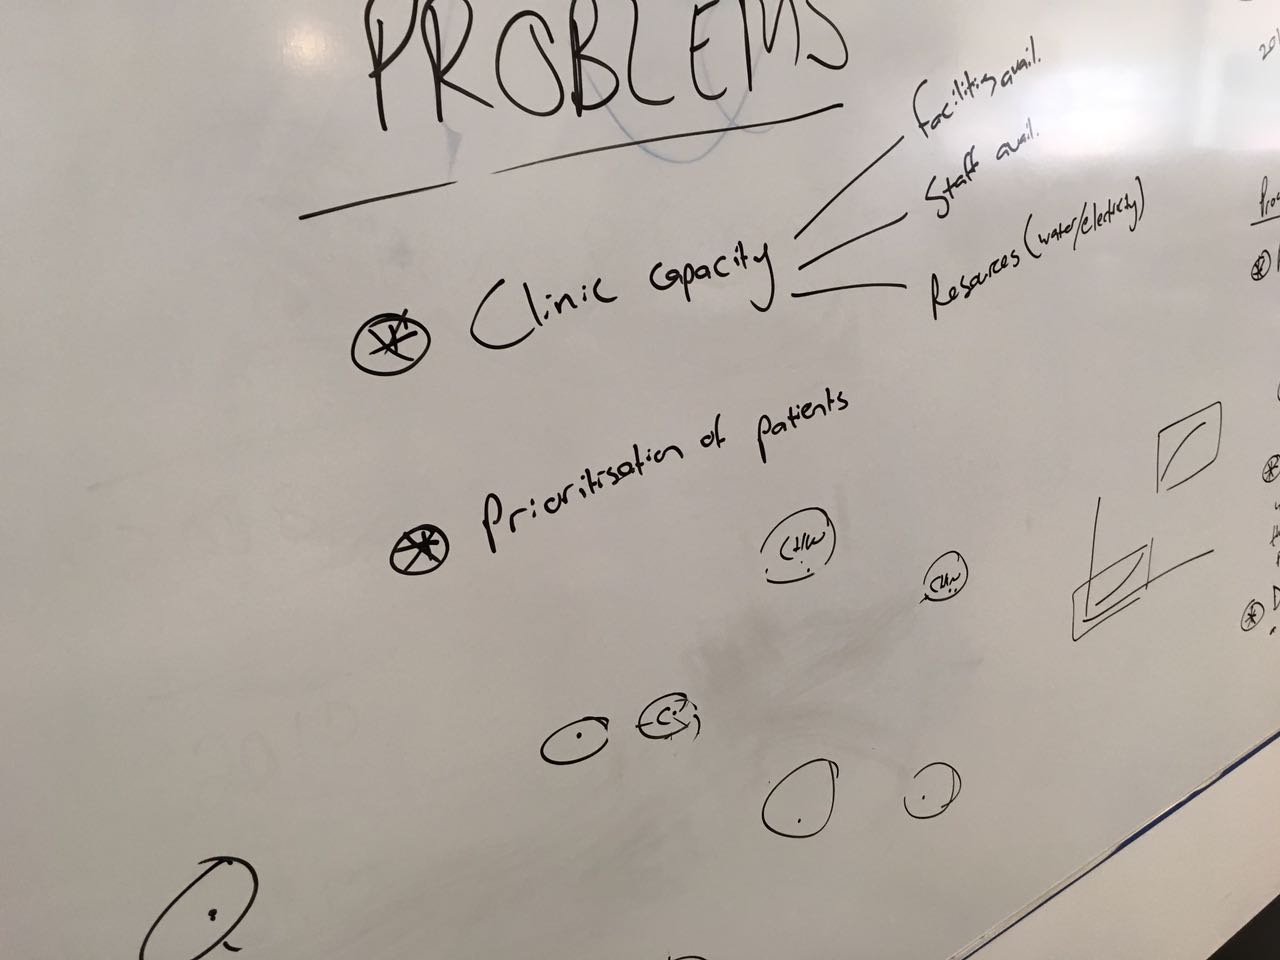 PROBLEMS
Clinic capacity
Facilities avail.
Staff avail.
Resources (water/electricity)
Prioritisation of patients
CHW
CHW